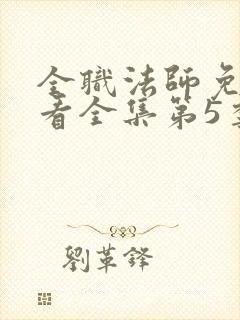 全職法師免
看全集第5季
劉革鋒